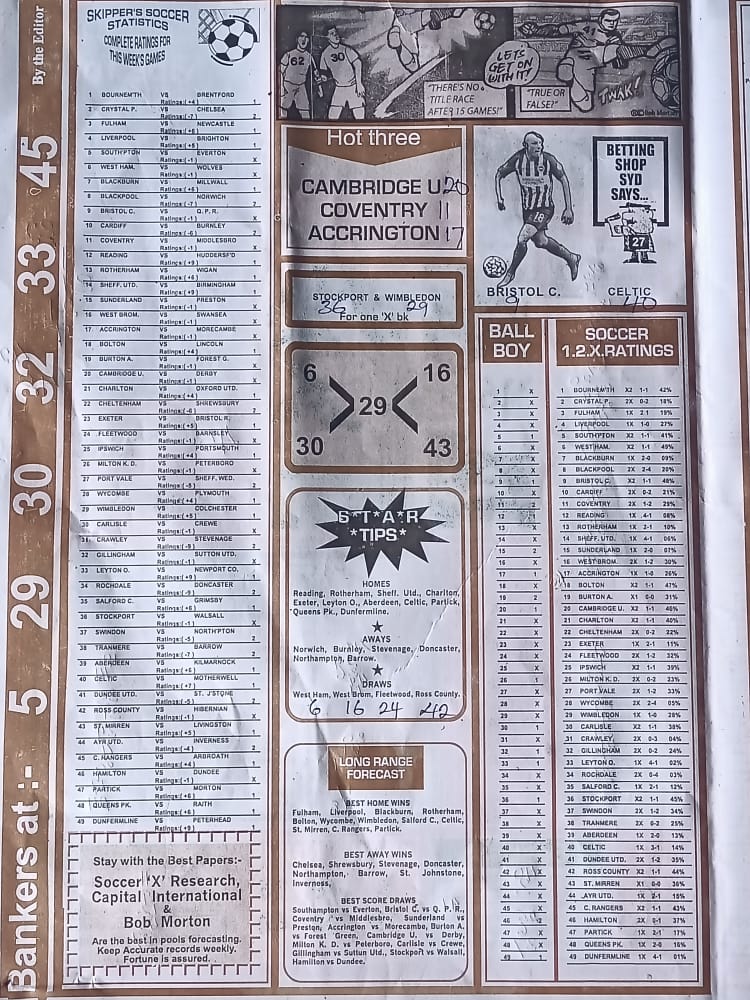 Bankers at :- 5 29 30 32 33 45 By the Editor
SKIPPER'S SOCCER
STATISTICS
COMPLETE RATINGS FOR
THIS WEEK'S GAMES
1 BOURNEM'TH VS BRENTFORD
Ratings:(+4) 1
2 CRYSTAL P. VS CHELSEA
Ratings:(-7) 2
3 FULHAM VS NEWCASTLE
Ratings:(+6) 1
4 LIVERPOOL VS BRIGHTON
Ratings:(+5) 1
5 SOUTH'PTON VS EVERTON
Ratings:(-1) X
6 WEST HAM. VS WOLVES
Ratings:(-1) X
7 BLACKBURN VS MILLWALL
Ratings:(+6) 1
8 BLACKPOOL VS NORWICH
Ratings:(-7) 2
9 BRISTOL C. VS Q. P. R.
Ratings:(-1) X
10 CARDIFF VS BURNLEY
Ratings:(-6) 2
11 COVENTRY VS MIDDLESBRO
Ratings:(-1) X
12 READING VS HUDDERSF'D
Ratings:(+9) 1
13 ROTHERHAM VS WIGAN
Ratings:(+6) 1
14 SHEFF. UTD. VS BIRMINGHAM
Ratings:(+9) 1
15 SUNDERLAND VS PRESTON
Ratings:(-1) X
16 WEST BROM. VS SWANSEA
Ratings:(-1) X
17 ACCRINGTON VS MORECAMBE
Ratings:(-1) X
18 BOLTON VS LINCOLN
Ratings:(+4) 1
19 BURTON A. VS FOREST G.
Ratings:(-1) X
20 CAMBRIDGE U. VS DERBY
Ratings:(-1) X
21 CHARLTON VS OXFORD UTD.
Ratings:(+4) 1
22 CHELTENHAM VS SHREWSBURY
Ratings:(-6) 2
23 EXETER VS BRISTOL R.
Ratings:(+5) 1
24 FLEETWOOD VS BARNSLEY
Ratings:(-1) X
25 IPSWICH VS PORTSMOUTH
Ratings:(+4) 1
26 MILTON K. D. VS PETERBORO
Ratings:(-1) X
27 PORT VALE VS SHEFF. WED.
Ratings:(-8) 2
28 WYCOMBE VS PLYMOUTH
Ratings:(+4) 1
29 WIMBLEDON VS COLCHESTER
Ratings:(+5) 1
30 CARLISLE VS CREWE
Ratings:(-1) X
31 CRAWLEY VS STEVENAGE
Ratings:(-9) 2
32 GILLINGHAM VS SUTTON UTD.
Ratings:(-1) X
33 LEYTON O. VS NEWPORT CO.
Ratings:(+9) 1
34 ROCHDALE VS DONCASTER
Ratings:(-9) 2
35 SALFORD C. VS GRIMSBY
Ratings:(+6) 1
36 STOCKPORT VS WALSALL
Ratings:(-1) X
37 SWINDON VS NORTH'PTON
Ratings:(-5) 2
38 TRANMERE VS BARROW
Ratings:(-7) 2
39 ABERDEEN VS KILMARNOCK
Ratings:(+6) 1
40 CELTIC VS MOTHERWELL
Ratings:(+7) 1
41 DUNDEE UTD. VS ST. J'STONE
Ratings:(-5) 2
42 ROSS COUNTY VS HIBERNIAN
Ratings:(-1) X
43 ST. MIRREN VS LIVINGSTON
Ratings:(+5) 1
44 AYR UTD. VS INVERNESS
Ratings:(-4) 2
45 C. RANGERS VS ARBROATH
Ratings:(+4) 1
46 HAMILTON VS DUNDEE
Ratings:(-1) X
47 PARTICK VS MORTON
Ratings:(+6) 1
48 QUEENS PK. VS RAITH
Ratings:(+6) 1
49 DUNFERMLINE VS PETERHEAD
Ratings:(+9) 1
Stay with the Best Papers:-
Soccer 'X' Research,
Capital International
&
Bob Morton
Are the best in pools forecasting.
Keep Accurate records weekly.
Fortune is assured.
62 30
"THERE'S NO
TITLE RACE
AFTER 15 GAMES!"
LET'S
GET ON
WITH IT!
"TRUE OR
FALSE?"
41
TWAK!
Hot three
CAMBRIDGE U. 20
COVENTRY 11
ACCRINGTON 17
STOCKPORT & WIMBLEDON
36 29
For one 'X' bk
6 16
29
30 43
S*T*A*R
*TIPS*
HOMES
Reading, Rotherham, Sheff. Utd., Charlton,
Exeter, Leyton O., Aberdeen, Celtic, Partick,
Queens Pk., Dunfermline.
AWAYS
Norwich, Burnley, Stevenage, Doncaster,
Northampton, Barrow.
DRAWS
West Ham, West Brom, Fleetwood, Ross County.
6 16 24 42
LONG RANGE
FORECAST
BEST HOME WINS
Fulham, Liverpool, Blackburn, Rotherham,
Bolton, Wycombe, Wimbledon, Salford C., Celtic,
St. Mirren, C. Rangers, Partick.
BEST AWAY WINS
Chelsea, Shrewsbury, Stevenage, Doncaster,
Northampton, Barrow, St. Johnstone,
Inverness,
BEST SCORE DRAWS
Southampton vs Everton, Bristol C. vs Q. P. R.,
Coventry vs Middlesbro, Sunderland vs
Preston, Accrington vs Morecambe, Burton A.
vs Forest Green, Cambridge U. vs Derby,
Milton K. D. vs Peterboro, Carlisle vs Crewe,
Gillingham vs Suttun Utd., Stockport vs Walsall,
Hamilton vs Dundee.
18
BRISTOL C.
9
BETTING
SHOP
SYD
SAYS...
27
CELTIC
40
BALL
BOY
1 X
2 X
3 X
4 X
5 1
6 X
7 X
8 X
9 X
10 X
11 2
12 X
13 X
14 X
15 2
16 X
17 1
18 X
19 2
20 1
21 X
22 X
23 X
24 X
25 X
26 1
27 X
28 X
29 X
30 1
31 X
32 1
33 1
34 X
35 X
36 1
37 X
38 X
39 X
40 1
41 X
42 X
43 X
44 X
45 X
46 2
47 X
48 X
49 1
SOCCER
1.2.X.RATINGS
1 BOURNEM'TH X2 1-1 42%
2 CRYSTAL P. 2X 0-2 18%
3 FULHAM 1X 2 1 19%
4 LIVERPOOL 1X 1-0 27%
5 SOUTH'PTON X2 1-1 41%
6 WEST HAM. X2 1-1 49%
7 BLACKBURN 1X 2-0 09%
8 BLACKPOOL 2X 2-4 20%
9 BRISTOL C. X2 1-1 48%
10 CARDIFF 2X 0-2 21%
11 COVENTRY 2X 1-2 29%
12 READING 1X 4-1 08%
13 ROTHERHAM 1X 2-1 10%
14 SHEFF. UTD. 1X 4-1 06%
15 SUNDERLAND 1X 2-0 07%
16 WEST BROM. 2X 1-2 30%
17 ACCRINGTON 1X 1-0 26%
18 BOLTON X2 1-1 47%
19 BURTON A. X1 0-0 31%
20 CAMBRIDGE U. X2 1-1 46%
21 CHARLTON X2 1-1 40%
22 CHELTENHAM 2X 0-2 22%
23 EXETER 1X 2-1 11%
24 FLEETWOOD 2X 1-2 32%
25 IPSWICH X2 1-1 39%
26 MILTON K. D. 2X 0-2 23%
27 PORT VALE 2X 1-2 33%
28 WYCOMBE 2X 2-4 05%
29 WIMBLEDON 1X 1-0 28%
30 CARLISLE X2 1-1 38%
31 CRAWLEY 2X 0-3 04%
32 GILLINGHAM 2X 0-2 24%
33 LEYTON O. 1X 4-1 02%
34 ROCHDALE 2X 0-4 03%
35 SALFORD C. 1X 2-1 12%
36 STOCKPORT X2 1-1 45%
37 SWINDON 2X 1-2 34%
38 TRANMERE 2X 0-2 25%
39 ABERDEEN 1X 2-0 13%
40 CELTIC 1X 3-1 14%
41 DUNDEE UTD. 2X 1-2 35%
42 ROSS COUNTY X2 1-1 44%
43 ST. MIRREN X1 0-0 36%
44 AYR UTD. 1X 2-1 15%
45 C. RANGERS X2 1-1 43%
46 HAMILTON 2X 0-1 37%
47 PARTICK 1X 2-1 17%
48 QUEENS PK. 1X 2-0 16%
49 DUNFERMLINE 1X 4-1 01%